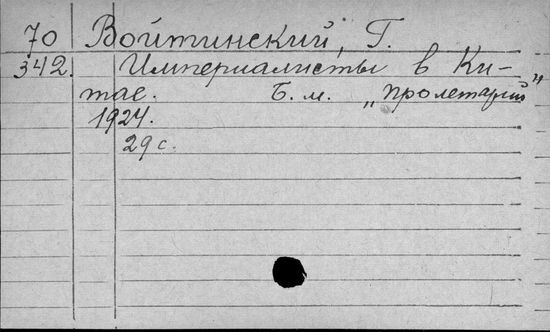 70 Войтинский, Г.
342. Империалисты в Ки-
тае. Б. м. „Пролетарий"
1924.
29 с.